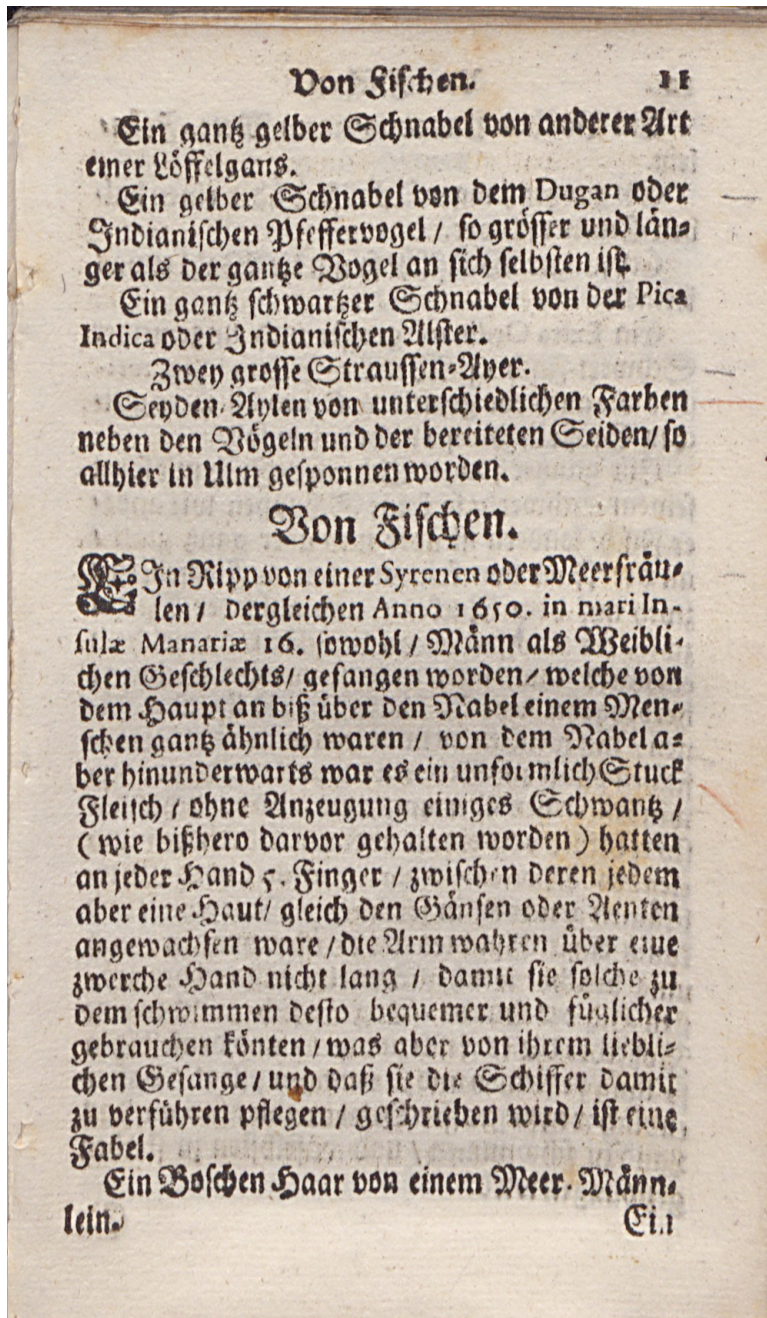 Von Fischen. 11
Ein gantz gelber Schnabel von anderer Art
einer Löffelgans.
Ein gelber Schnabel von dem Dugan oder
Indianischen Pfeffervogel / so grösser und län-
ger als der gantze Vogel an sich selbsten ist.
Ein gantz schwartzer Schnabel von der Pica
Indica oder Indianischen Alster.
Zwey grosse Straussen-Ayer.
Seyden-Aylen von unterschiedlichen Farben
neben den Vögeln und der bereiteten Seiden/ so
allhier in Ulm gesponnen worden.
Von Fischen.
EIn Ripp von einer Syrenen oder Meerfräu-
len / dergleichen Anno 1650. in mari In-
sulæ Manariæ 16. sowohl / Männ als Weibli-
chen Geschlechts/ gefangen worden/ welche von
dem Haupt an biß über den Nabel einem Men-
schen gantz ähnlich waren / von dem Nabel a-
ber hinunderwarts war es ein unformlich Stuck
Fleisch / ohne Anzeugung einiges Schwantz /
( wie bißhero darvor gehalten worden ) hatten
an jeder Hand 5. Finger / zwischen deren jedem
aber eine Haut/ gleich den Gänsen oder Aenten
angewachsen ware / die Arm wahren über eine
zwerche Hand nicht lang / damit sie solche zu
dem schwimmen desto bequemer und füglicher
gebrauchen könten / was aber von ihrem liebli-
chen Gesange / und daß sie die Schiffer damit
zu verführen pflegen / geschrieben wird / ist eine
Fabel.
Ein Boschen Haar von einem Meer-Männ-
lein. Ein